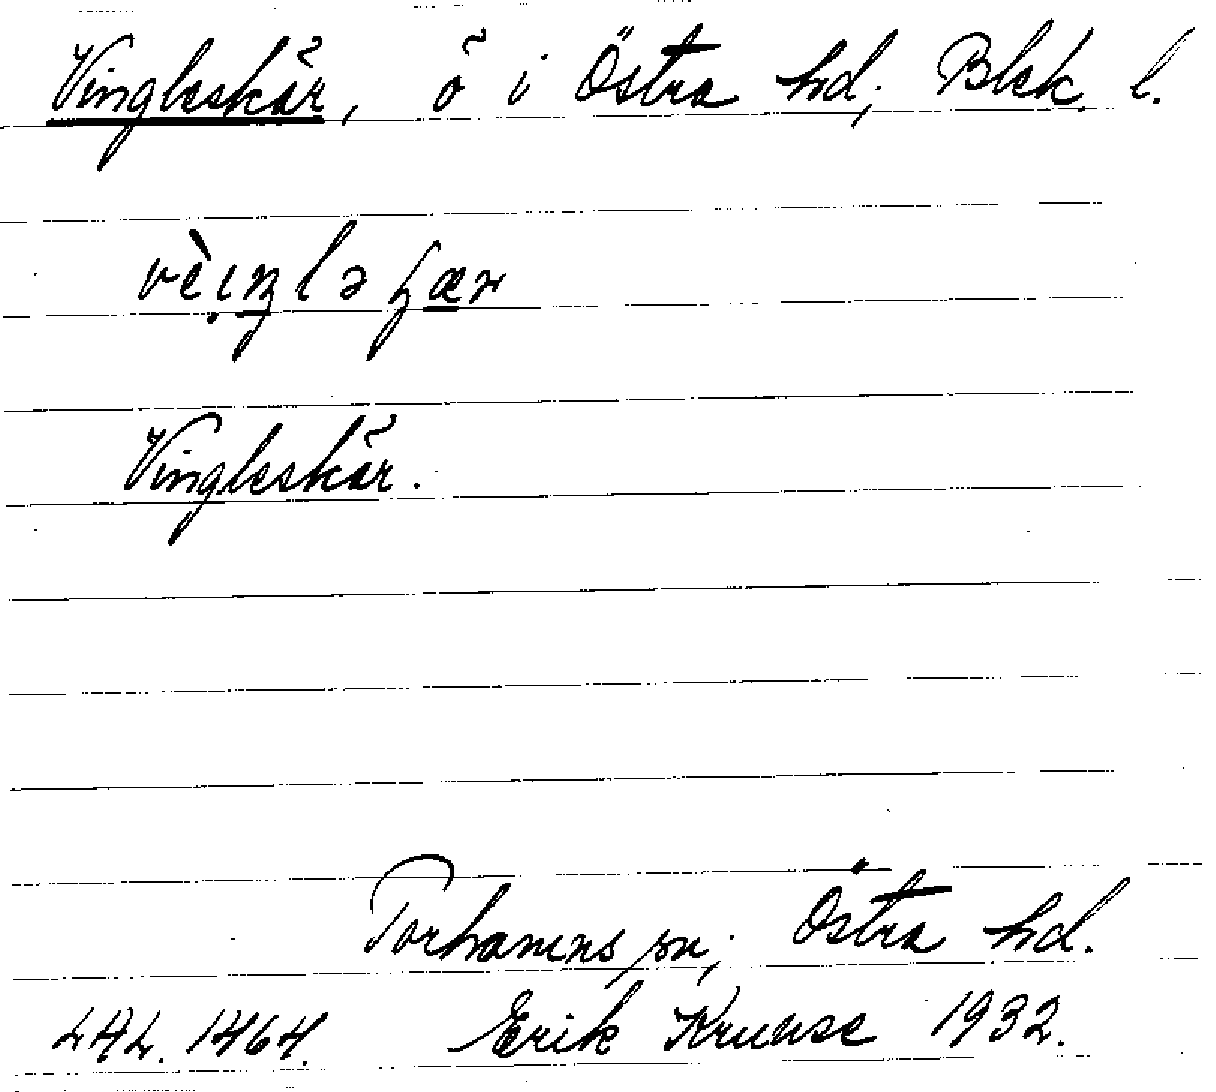 Vingleskär, ö i Östra hd, Blek. l.
Vingleskär.
Torhamns sn, Östra hd.
LAL. 1464. Erik Kruuse 1932.